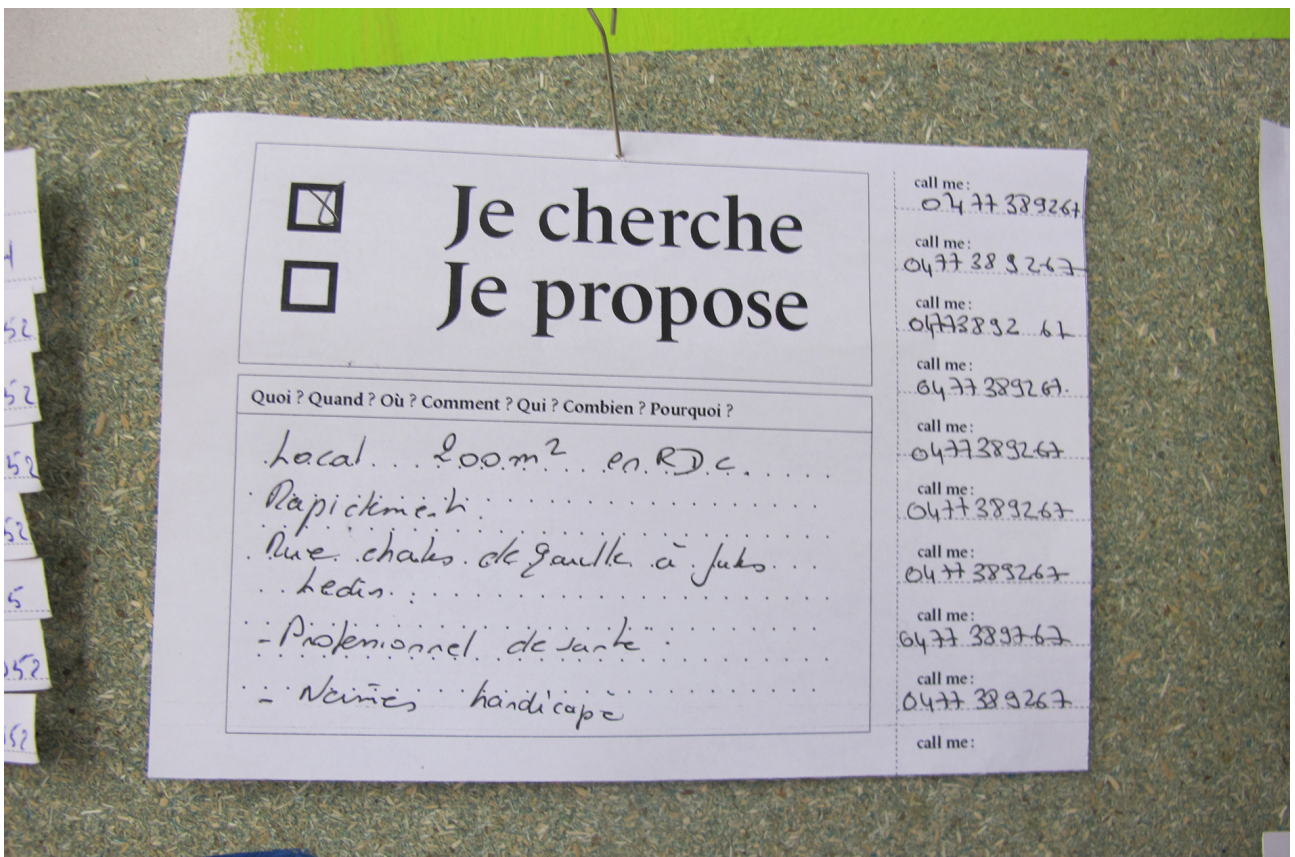 Je cherche
Je propose
Quoi ? Quand ? Où ? Comment ? Qui ? Combien ? Pourquoi ?
Local 200m² en RDC.
Rapidement.
Rue charles de gaulle à Jules
Ledin :
- Professionnel de santé
- Normes handicapé
call me :
0477389267
call me :
0477389267
call me :
0477389267
call me :
0477389267.
call me :
0477389267
call me :
0477389267
call me :
0477389267
call me :
0477389767
call me :
0477389267
call me :
52
52
52
52
5
052
52